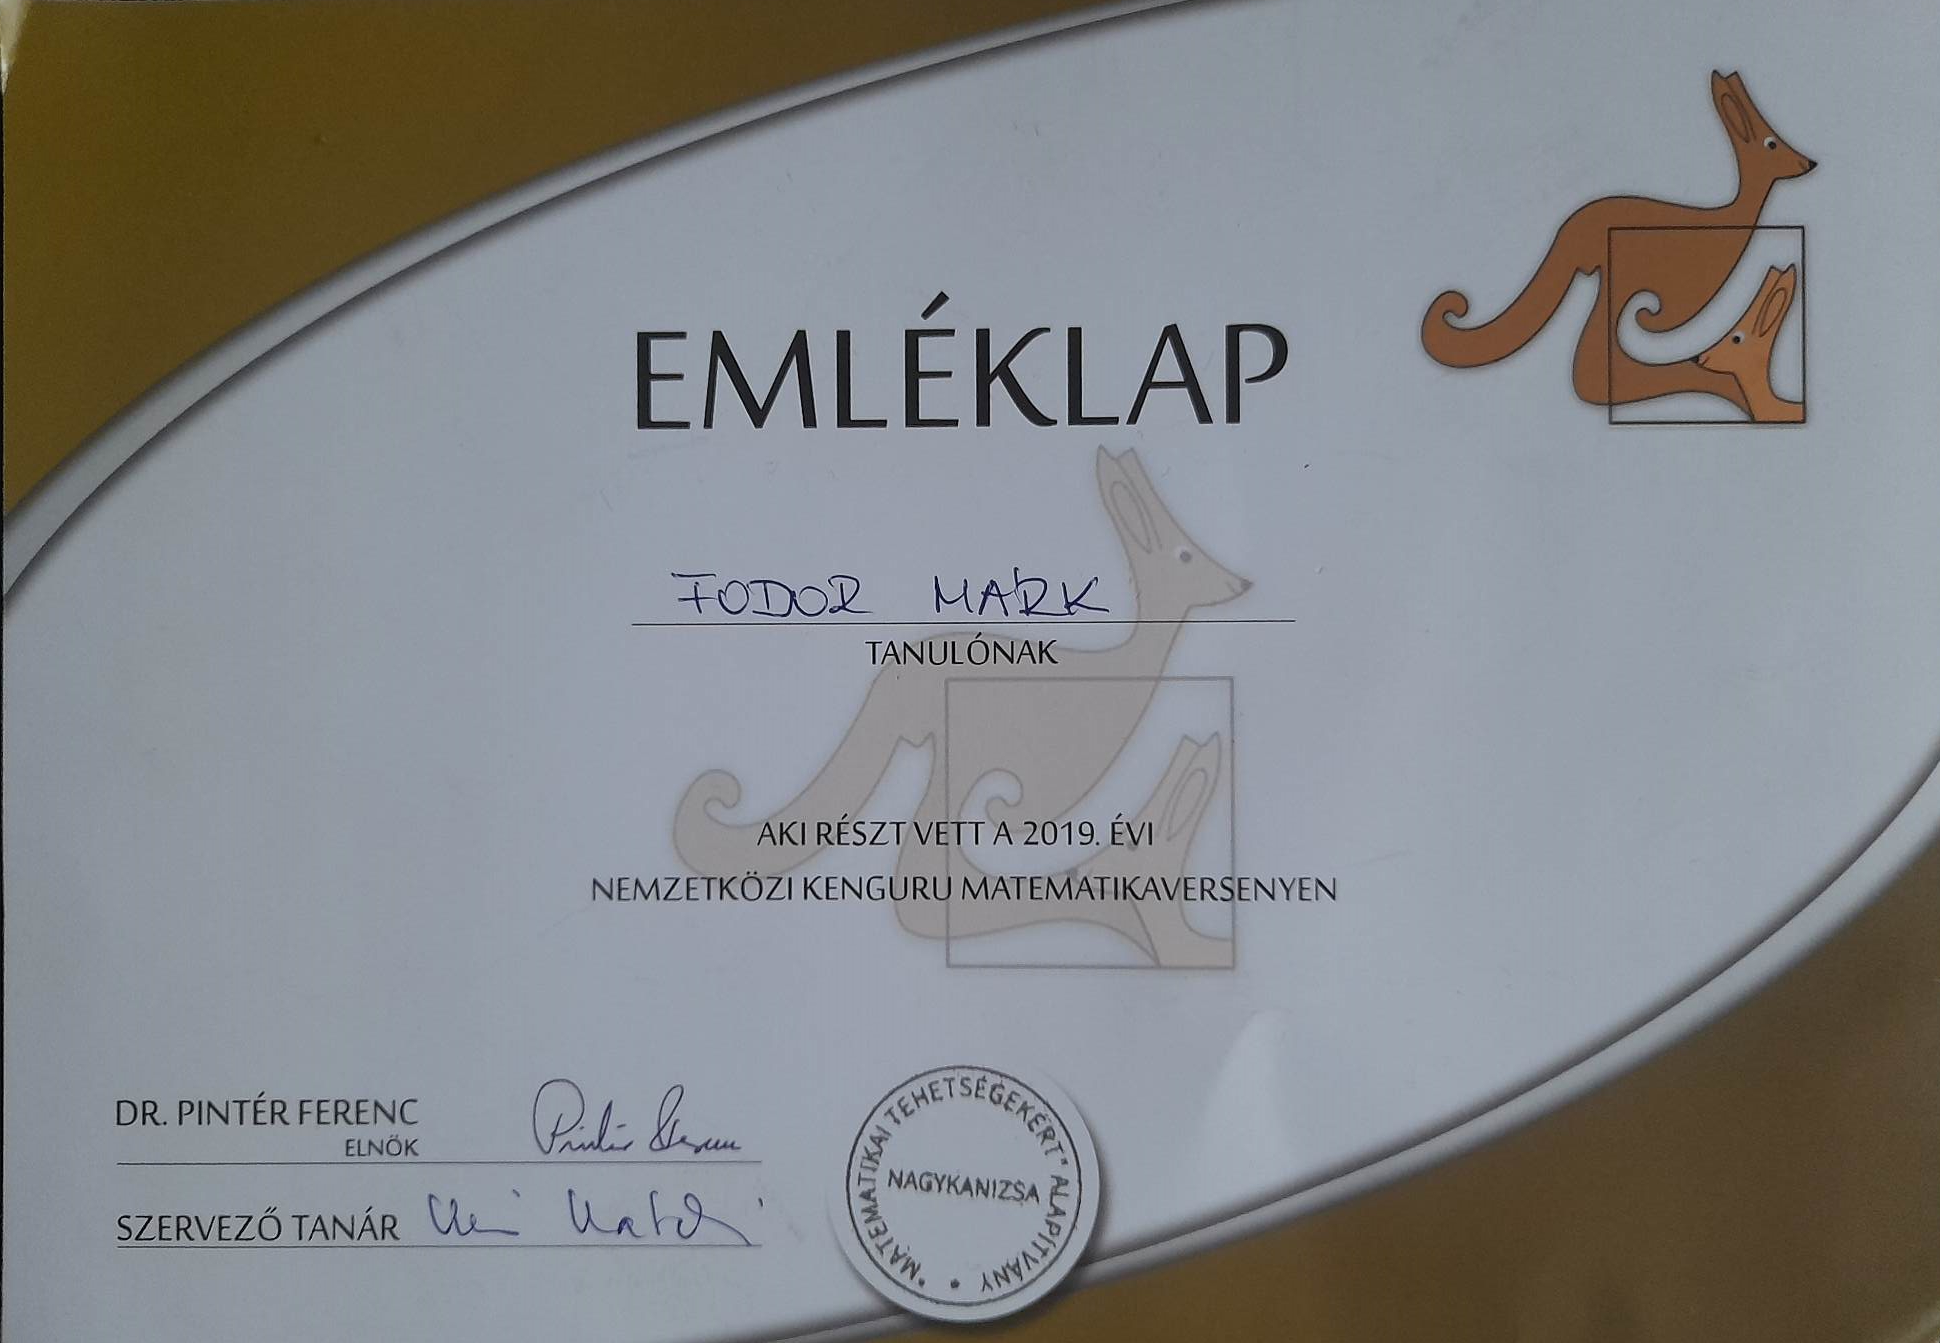 EMLÉKLAP
FODOR MARK
TANULÓNAK
AKI RÉSZT VETT A 2019. ÉVI
NEMZETKÖZI KENGURU MATEMATIKAVERSENYEN
DR. PINTÉR FERENC
ELNÖK
Pintér Ferenc
SZERVEZŐ TANÁR
"MATEMATIKAI TEHETSÉGEKÉRT" ALAPÍTVÁNY
NAGYKANIZSA